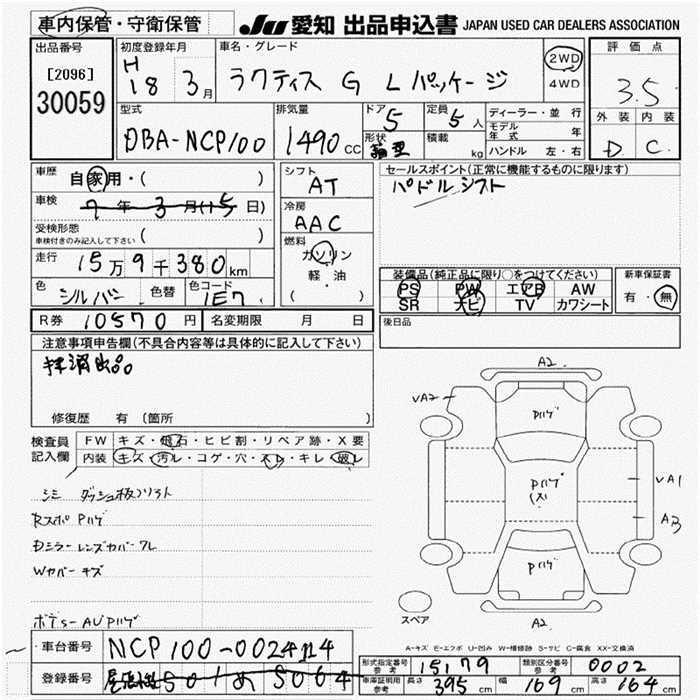 車内保管・守衛保管
JU 愛知 出品申込書 JAPAN USED CAR DEALERS ASSOCIATION
出品番号
[2096]
30059
初度登録年月
H
18 3月
車名・グレード
ラクティス G Lパッケージ
2WD
4WD
評価点
3.5
外装 内装
D C
型式
DBA-NCP100
排気量
1490 CC
ドア
5
形状
箱型
定員
5人
積載
kg
ディーラー・並行
モデル年式 年
ハンドル 左・右
車歴
自家用・( )
車検
7年3月(15日)
受検形態
車検付きのみ記入して下さい ( )
走行
15万9千380km
色
シルバー
色替
色コード
1E7
R券 10570円
名変期限 月 日
シフト
AT
冷房
AAC
燃料
ガソリン
軽・油
( )
セールスポイント(正常に機能するものに限ります)
パドルシフト
装備品(純正品に限り○をつけてください)
PS PW エアB AW
SR ナビ TV カワシート
新車保証書
有・無
後日品
注意事項申告欄(不具合内容等は具体的に記入して下さい)
抹消出品
修復歴 有 (箇所 )
検査員
記入欄
FW キズ・飛石・ヒビ割・リペア跡・X要
内装 キズ・汚レ・コゲ・穴・スレ・キレ・破レ
シミ ダッシュ板ソリント
Rスポ Pハゲ
Dミラーレンズカバーワレ
Wカバーキズ
ボデーAUPハゲ
A2
VA2
Pハゲ
Pハゲ
Pハゲ
VA1
A3
A2
スペア
A-キズ E-エクボ U-凹み W-補修跡 S-サビ C-腐食 XX-交換済
車台番号 NCP100-0024114
登録番号
形式指定番号
参考
15179
類別区分番号
参考
0002
車庫証明用
参考
長さ 395 cm 幅 169 cm 高さ 164 cm